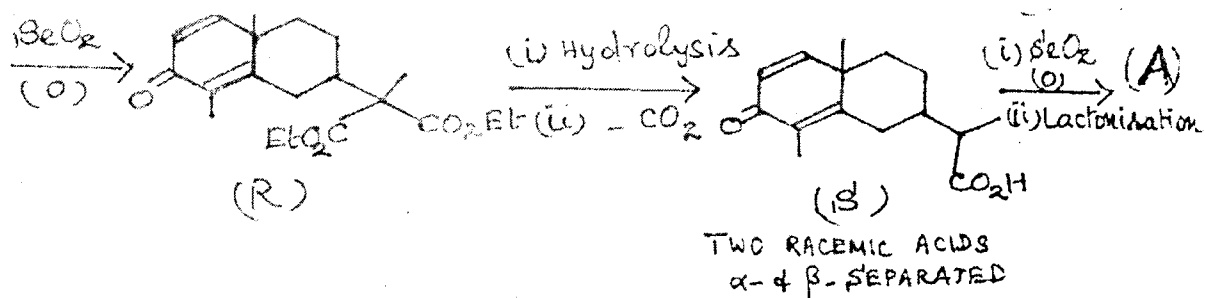 SeO2
(O)
O
EtO2C
CO2Et
(R)
(i) Hydrolysis
(ii) - CO2
O
CO2H
(S)
TWO RACEMIC ACIDS
α- & β- SEPARATED
(i) SeO2
(O)
(ii) Lactonisation
(A)